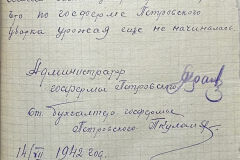 Его по госферме Петровского
уборка урожая еще не начиналась.
Администратор
госфермы Петровского
Ст. бухгалтер госфермы
Петровского
14/VII 1942 год.